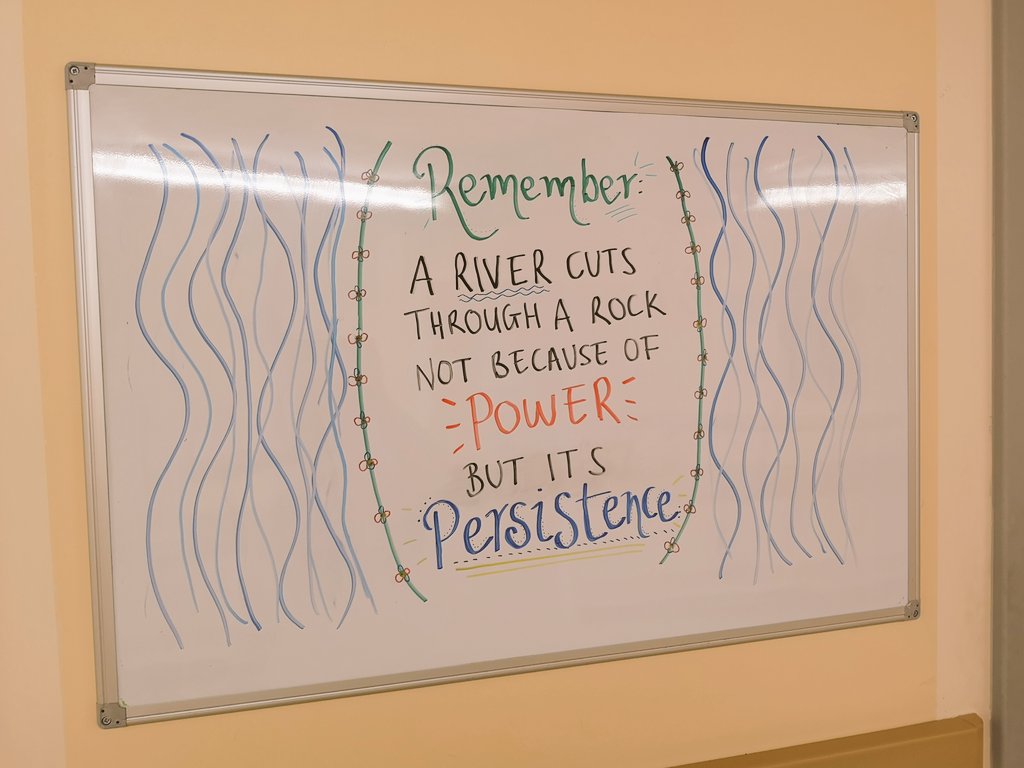 Remember:
A RIVER CUTS
THROUGH A ROCK
NOT BECAUSE OF
POWER
BUT ITS
Persistence